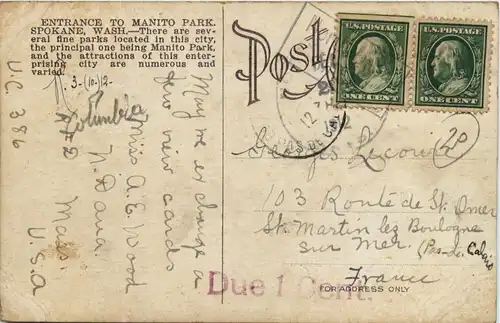 ENTRANCE TO MANITO PARK.
SPOKANE, WASH.—There are sev-
eral fine parks located in this city,
the principal one being Manito Park,
and the attractions of this enter-
prising city are numerous and
varied.
3-(10.)12-
Columbia
U.C 386
May we exchange a
few view cards
Miss A. E. Wood
N. Dana.
Mass.
U.S.A
Post
U.S. POSTAGE
ONE CENT
U.S. POSTAGE
ONE CENT
12
20
Georges Lecourt
103 Route de St. Omer
St. Martin lez Boulogne
sur Mer (Pas-de Calais
France
Due 1 Cent.
FOR ADDRESS ONLY